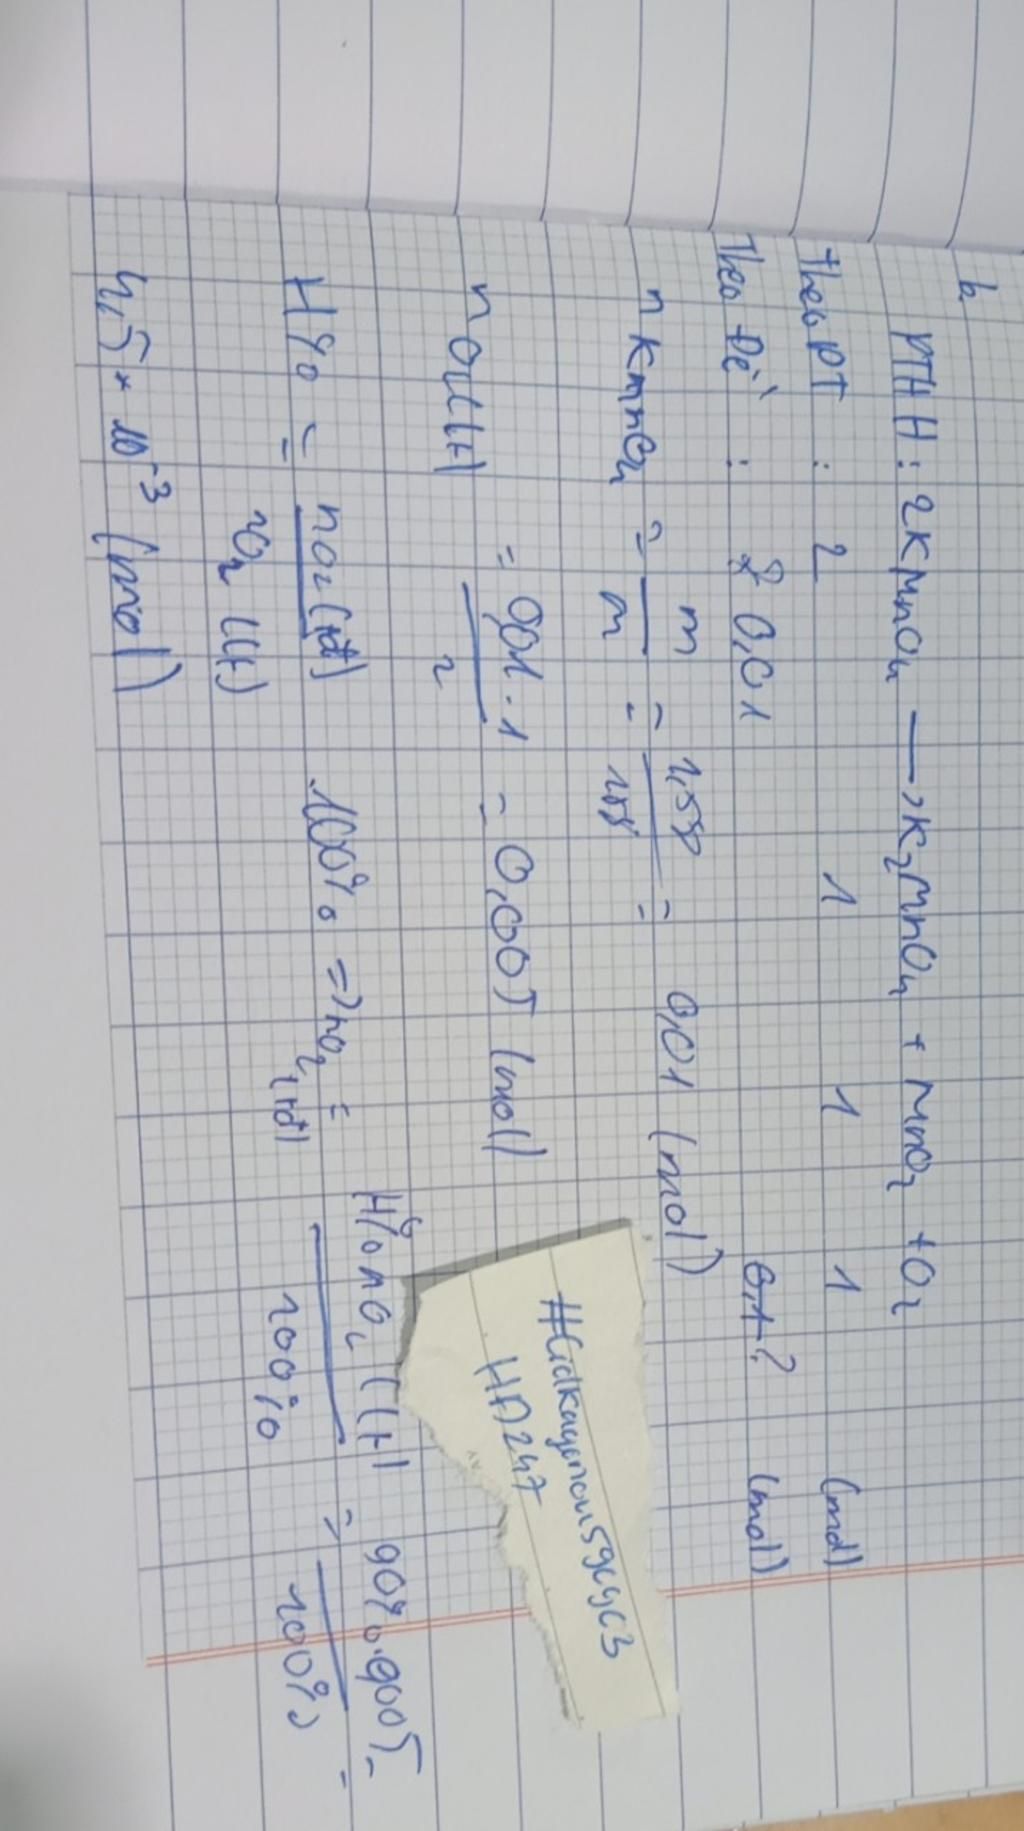 b
PTHH: 2KMnO4 → K2MnO4 + MnO2 + O2
Theo PT : 2 1 1 1 (mol)
Theo Đề : 0,01 ? (mol)
n KMnO4 = m/M = 1,58/158 = 0,01 (mol)
nO2(lt) = 0,01.1/2 = 0,005 (mol)
H% = nO2(tt)/nO2(lt) .100% => nO2(tt) = H%.nO2(lt)/100% = 90%.0,005/100% =
4,5 * 10^-3 (mol)
HA247